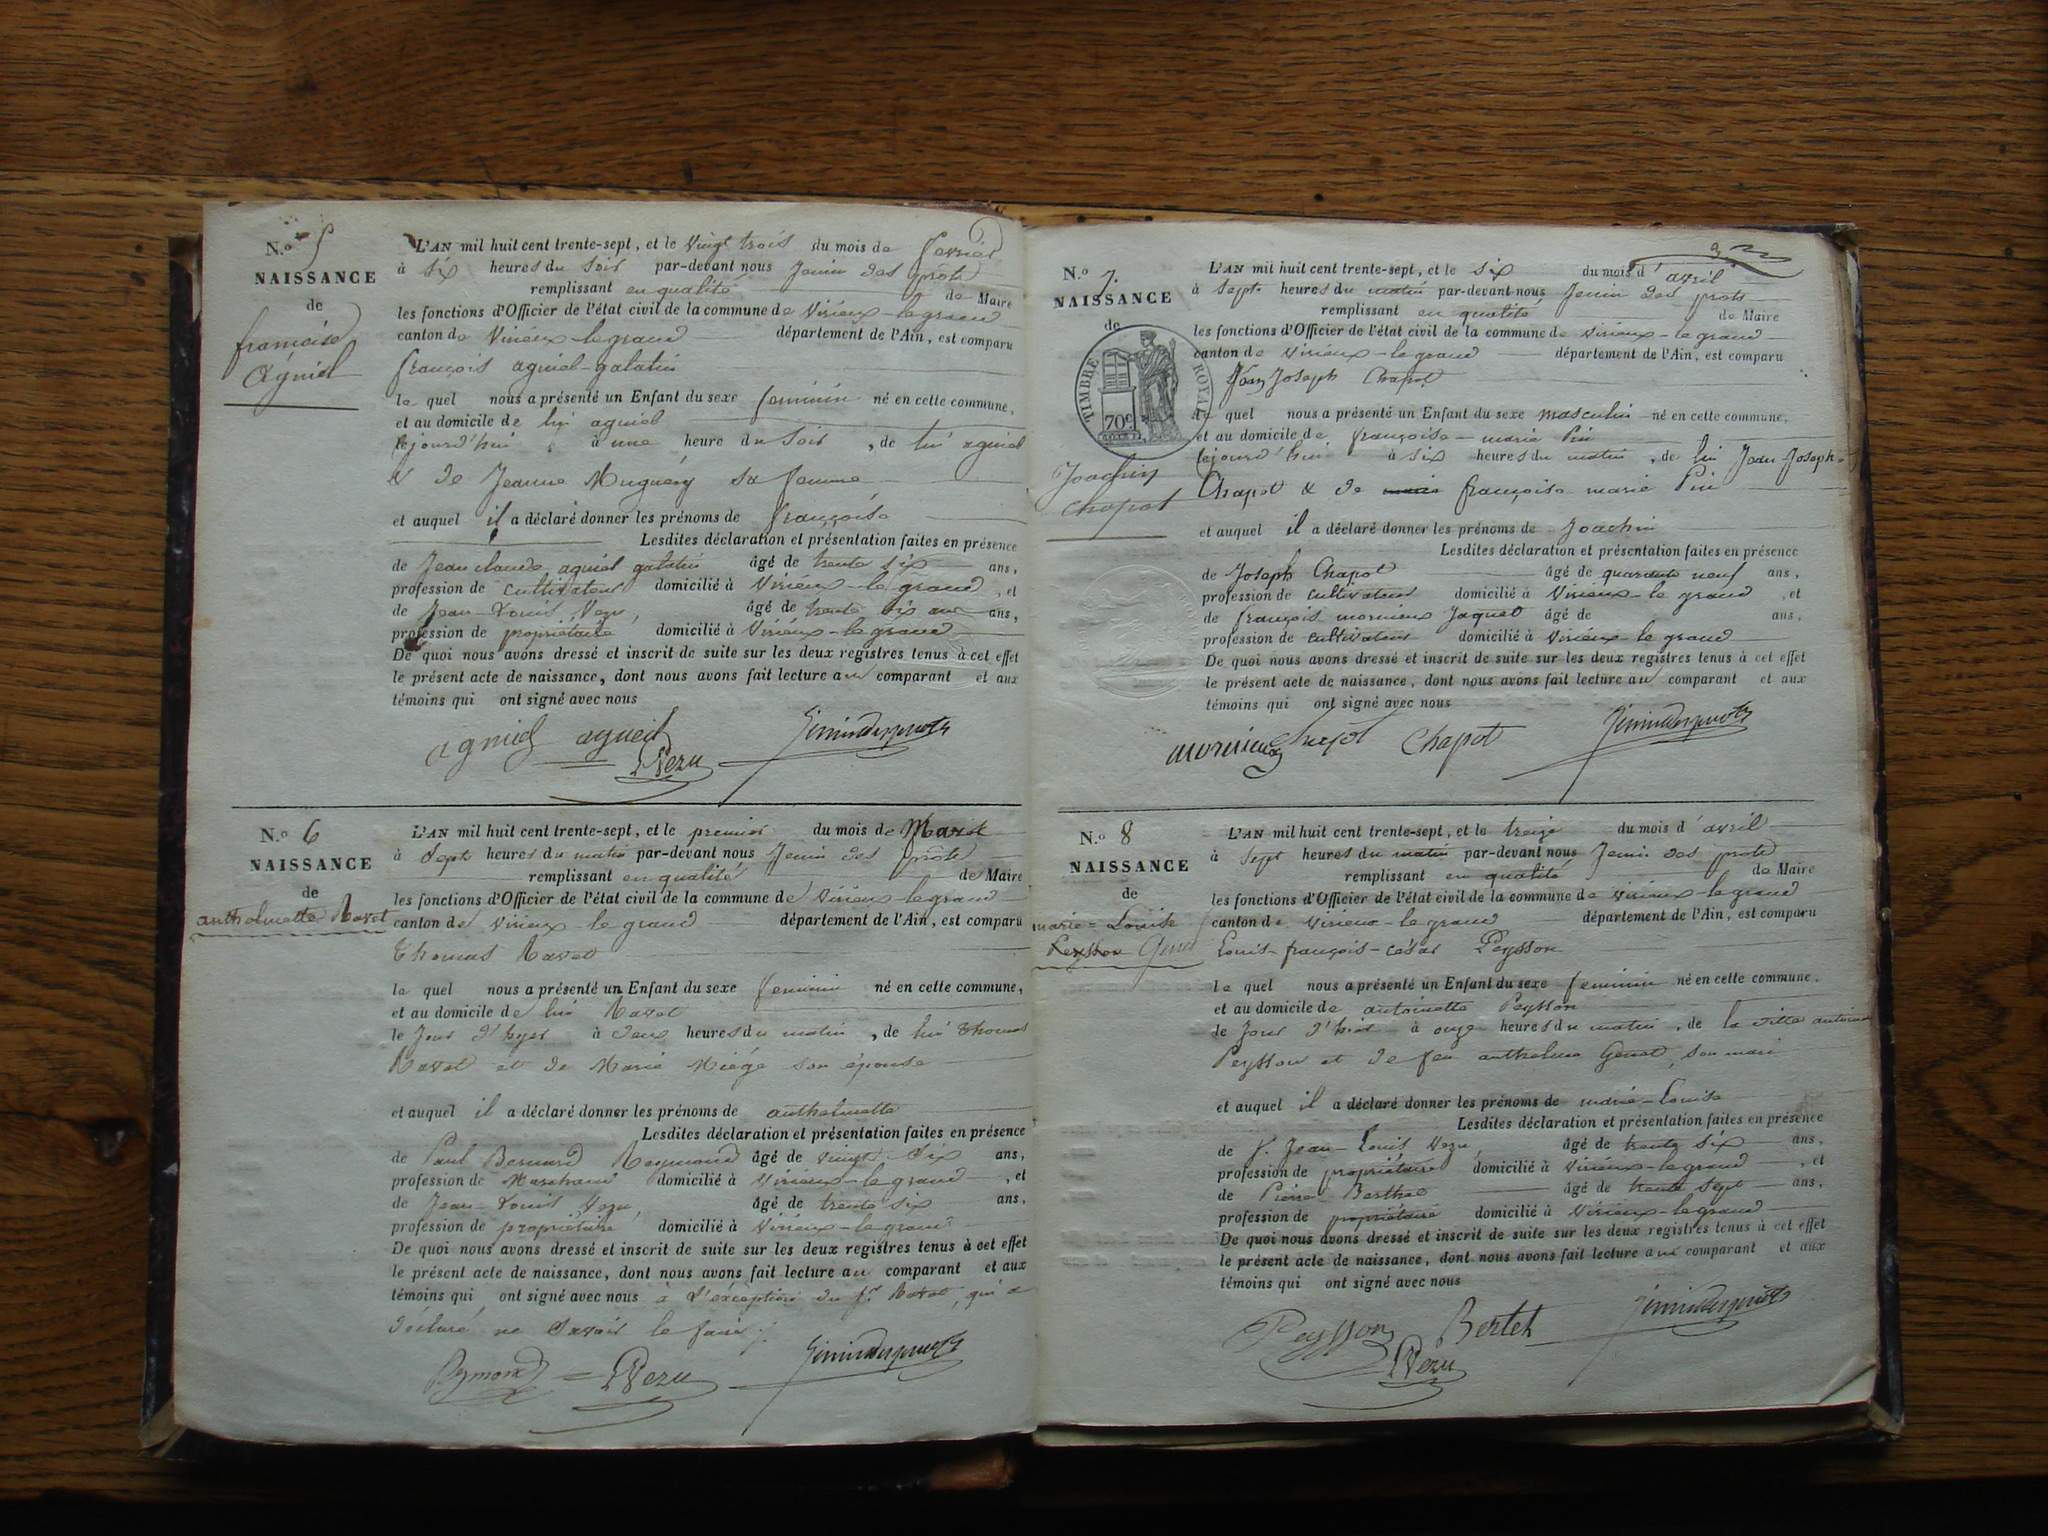 N.o 5
NAISSANCE
de
françoise
Agniel
L'AN mil huit cent trente-sept, et le vingt trois du mois de fevrier
à six heures du soir par-devant nous Jenin des prôts
remplissant en qualité de Maire
les fonctions d'Officier de l'état civil de la commune de Virieux-le-grand
canton de Virieux-le grand département de l'Ain, est comparu
françois agniel-galatin
le quel nous a présenté un Enfant du sexe feminin né en cette commune,
et au domicile de lui agniel
cejourd'hui à une heure du soir, de lui agniel
& de Jeanne sa femme
et auquel il a déclaré donner les prénoms de françoise
Lesdites déclaration et présentation faites en présence
de Jean claude agniel galatin âgé de trente six ans,
profession de cultivateur domicilié à Virieux-le grand, et
de Jean-Louis Vezu, âgé de trente six ans,
profession de propriétaire domicilié à Virieux-le grand
De quoi nous avons dressé et inscrit de suite sur les deux registres tenus à cet effet
le présent acte de naissance, dont nous avons fait lecture au comparant et aux
témoins qui ont signé avec nous
agniel agniel Jenin des prots
Vezu
N.o 6
NAISSANCE
de
anthelmette Ravet
L'AN mil huit cent trente-sept, et le premier du mois de
à sept heures du matin par-devant nous Jenin des prôts
remplissant en qualité de Maire
les fonctions d'Officier de l'état civil de la commune de Virieux-le grand
canton de Virieux-le grand département de l'Ain, est comparu
Thomas Ravet
le quel nous a présenté un Enfant du sexe feminin né en cette commune,
et au domicile de lui Ravet
le Jour d'hyer à deux heures du matin, de lui Thomas
Ravet et de Marie Miége son épouse
et auquel il a déclaré donner les prénoms de anthelmette
Lesdites déclaration et présentation faites en présence
de Paul Bernard Reymond âgé de vingt-six ans,
profession de Marchand domicilié à Virieux-le grand, et
de Jean-Louis Vezu, âgé de trente six ans,
profession de propriétaire domicilié à Virieux-le grand
De quoi nous avons dressé et inscrit de suite sur les deux registres tenus à cet effet
le présent acte de naissance, dont nous avons fait lecture au comparant et aux
témoins qui ont signé avec nous à l'éxception du Sr Ravet, qui a
déclaré ne savoir le faire
Reymond Vezu Jenin des prots
3
N.o 7.
NAISSANCE
de
TIMBRE ROYAL
70c
Joachin
Chapot
L'AN mil huit cent trente-sept, et le six du mois d'avril
à sept heures du matin par-devant nous Jenin des prots
remplissant en qualité de Maire
les fonctions d'Officier de l'état civil de la commune de Virieux-le grand
canton de Virieux-le grand département de l'Ain, est comparu
Jean Joseph Chapot
le quel nous a présenté un Enfant du sexe masculin né en cette commune,
et au domicile de françoise-marie Pin
cejourd'hui à six heures du matin, de lui Jean Joseph
Chapot & de marie françoise marie Pin
et auquel il a déclaré donner les prénoms de Joachin
Lesdites déclaration et présentation faites en présence
de Joseph Chapot âgé de quarante neuf ans,
profession de cultivateur domicilié à Virieux-le grand, et
de françois mornieux Jaquet âgé de ans,
profession de cultivateur domicilié à Virieux-le grand
De quoi nous avons dressé et inscrit de suite sur les deux registres tenus à cet effet
le présent acte de naissance, dont nous avons fait lecture au comparant et aux
témoins qui ont signé avec nous
mornieux Chapot Chapot Jenin des prots
N.o 8
NAISSANCE
de
marie-Louise
Peysson Genet
L'AN mil huit cent trente-sept, et le treize du mois d'avril
à sept heures du matin par-devant nous Jenin des prots
remplissant en qualité de Maire
les fonctions d'Officier de l'état civil de la commune de Virieux-le grand
canton de Virieux-le grand département de l'Ain, est comparu
Louis-françois-césar Peysson
le quel nous a présenté un Enfant du sexe feminin né en cette commune,
et au domicile de antoinette Peysson
le Jour d'hier à onze heures du matin, de la ditte antoinette
Peysson et de feu anthelme Genet, son mari
et auquel il a déclaré donner les prénoms de marie-Louise
Lesdites déclaration et présentation faites en présence
de Jean-Louis Vezu, âgé de trente six ans,
profession de propriétaire domicilié à Virieux-le grand, et
de Pierre Berthet âgé de trente sept ans,
profession de propriétaire domicilié à Virieux-le grand
De quoi nous avons dressé et inscrit de suite sur les deux registres tenus à cet effet
le présent acte de naissance, dont nous avons fait lecture aux comparant et aux
témoins qui ont signé avec nous
Peysson Bertet Jenin des prots
Vezu